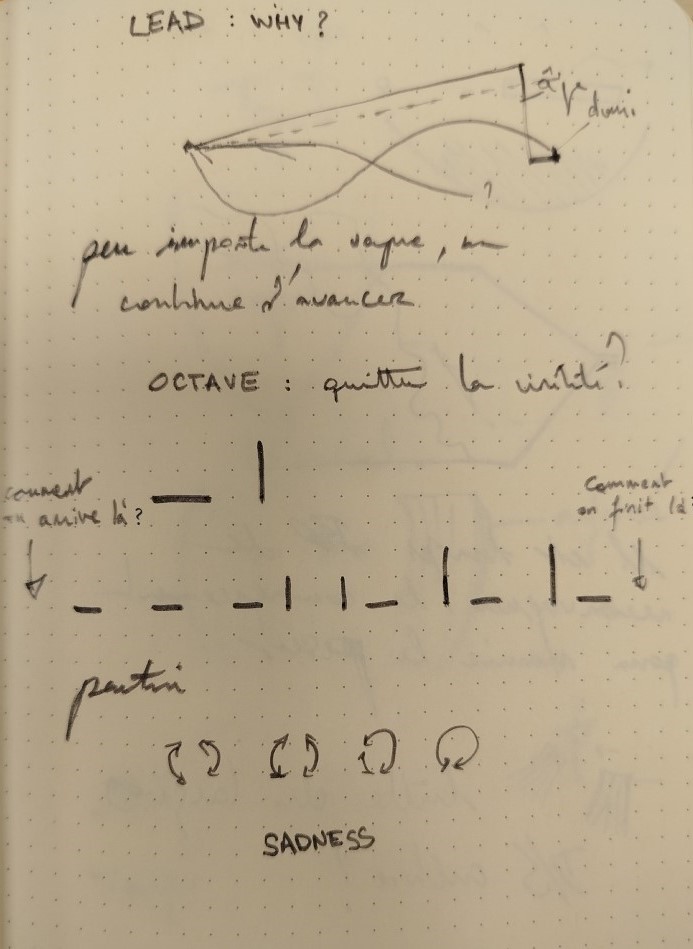 LEAD : WHY ?
?
peu importe la vague, on
continue d'avancer
OCTAVE : quitter la ?
comment
on arrive là ?
Comment
on finit là ?
SADNESS